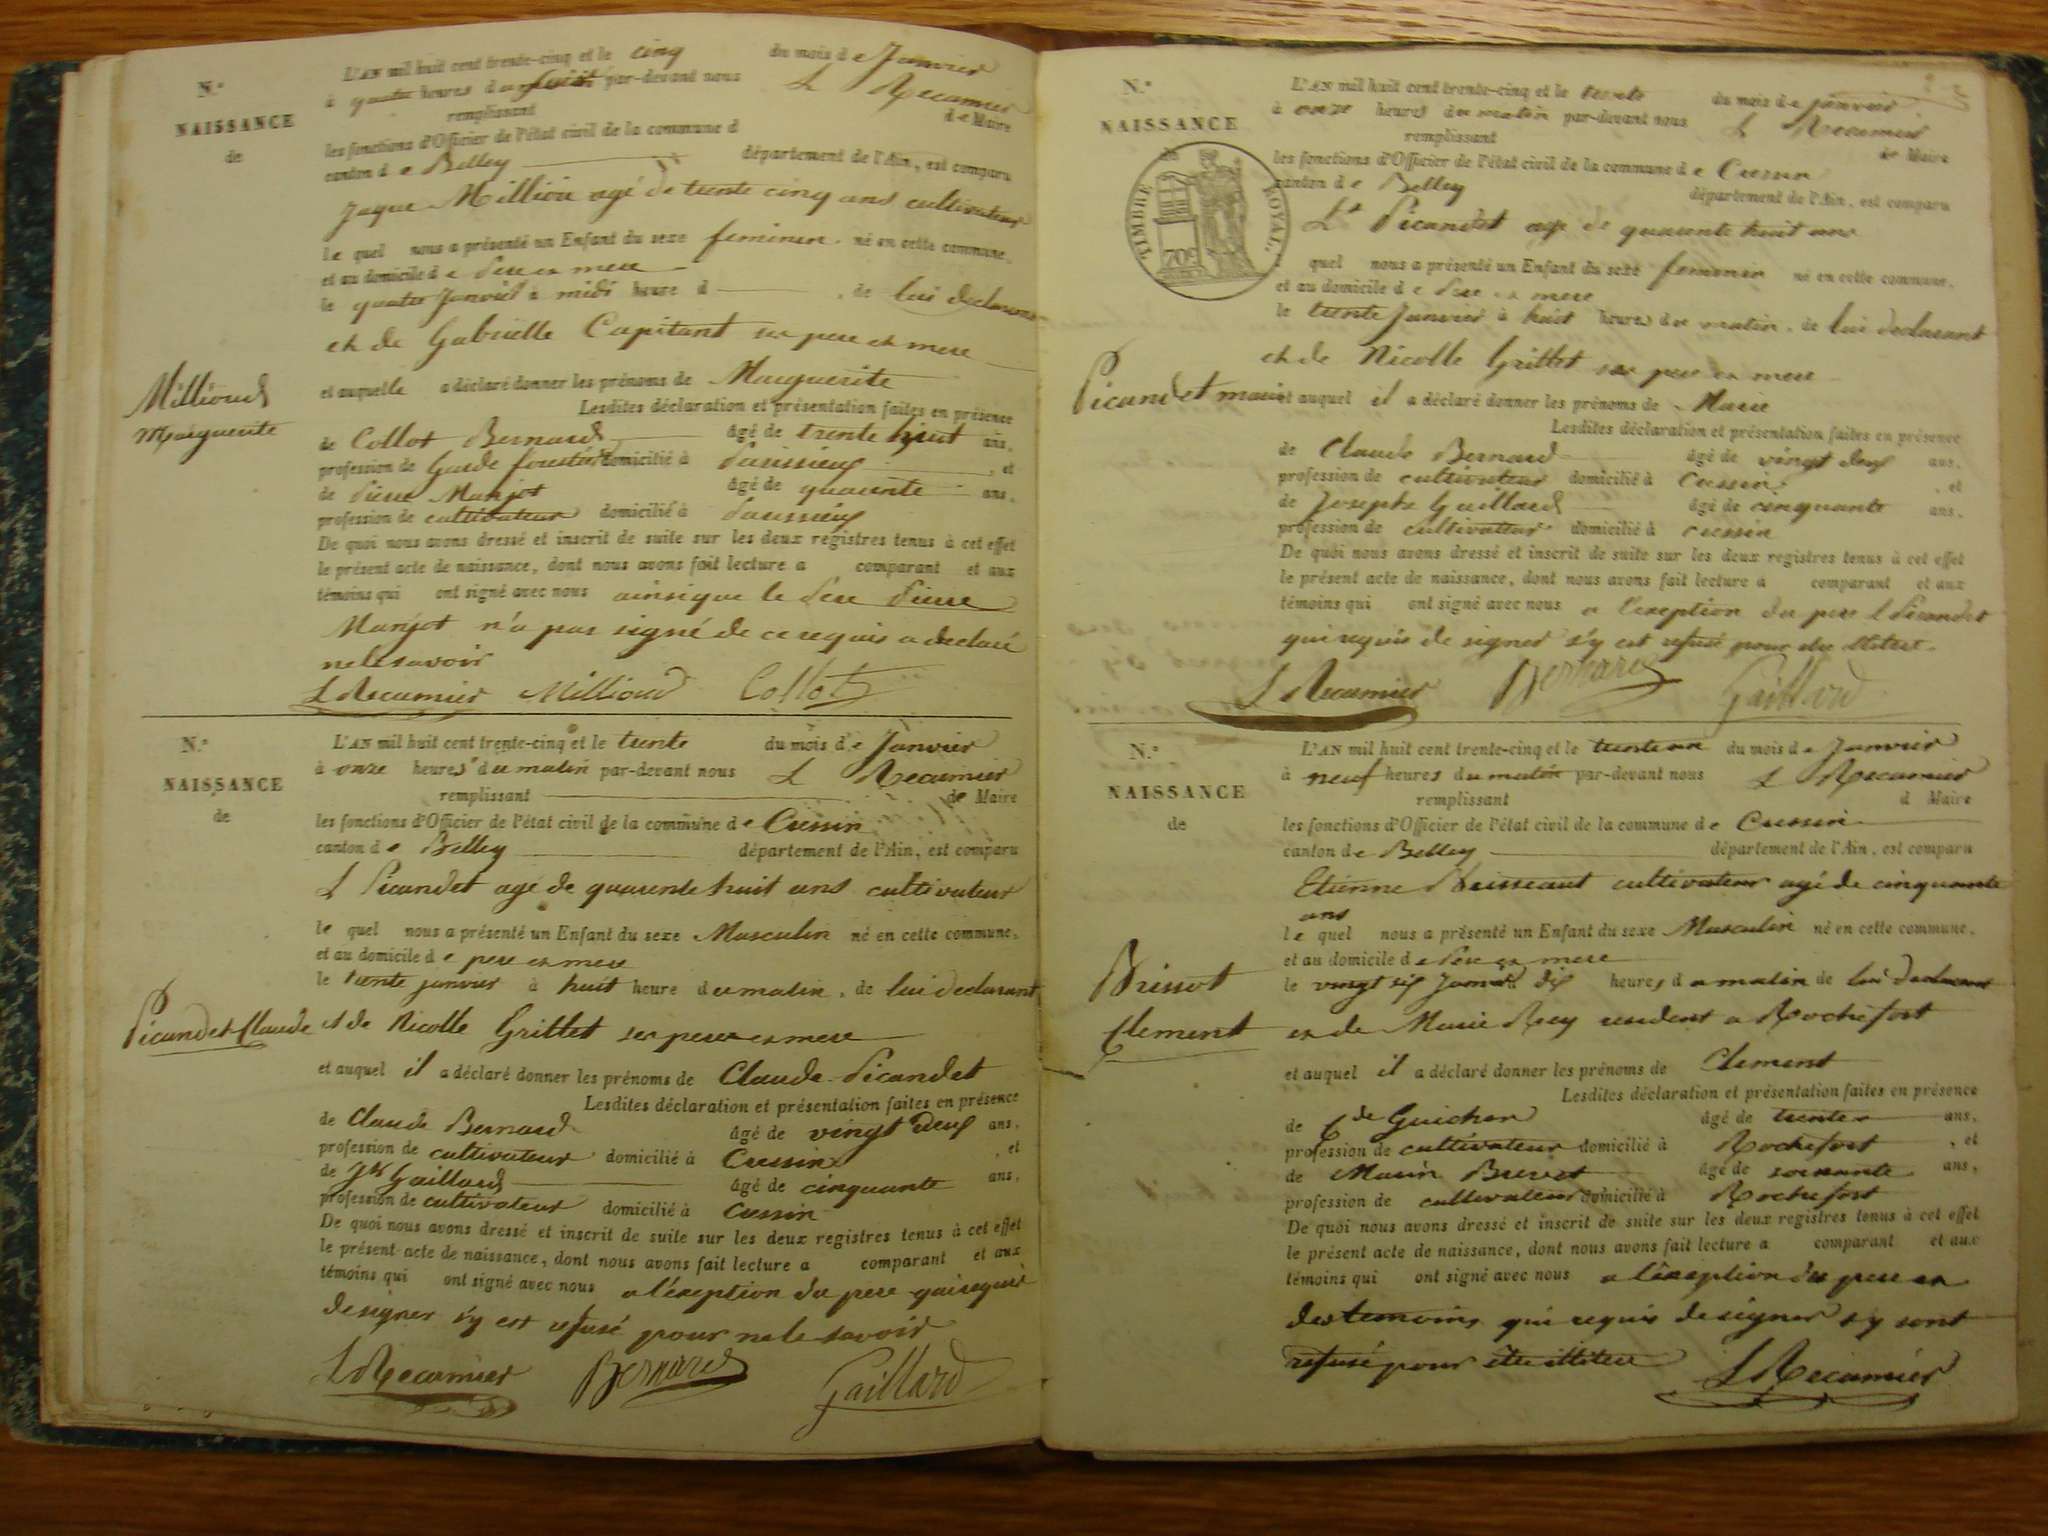 N.°
NAISSANCE
de
L'AN mil huit cent trente-cinq et le cinq du mois de Janvier
à quatre heures du soir par-devant nous L Recamier
remplissant de Maire
les fonctions d'Officier de l'état civil de la commune d
canton de Belley département de l'Ain, est comparu
Jaque Million agé de trente cinq ans cultivateur
le quel nous a présenté un Enfant du sexe feminen né en cette commune,
et au domicile de Pere et mere
le quatre Janvier à midi heure d , de lui declarant
et de Gabrielle Capitant ses pere et mere
Milliond
Marguerite
et auquelle a déclaré donner les prénoms de Marguerite
Lesdites déclaration et présentation faites en présence
de Collot Bernard âgé de trente huit ans,
profession de Garde domicilié à , et
de Pierre Marjot âgé de quarente ans,
profession de cultivateur domicilié à
De quoi nous avons dressé et inscrit de suite sur les deux registres tenus à cet effet
le présent acte de naissance, dont nous avons fait lecture a comparant et aux
témoins qui ont signé avec nous ainsi que le Pere Pierre
Marjot n'a pas signé de ce requis a declaré
ne le savoir
L Recamier Milliond Collot
N.°
NAISSANCE
de
L'AN mil huit cent trente-cinq et le trente du mois de Janvier
à onze heures du matin par-devant nous L Recamier
remplissant de Maire
les fonctions d'Officier de l'état civil de la commune de Cressin
canton de Belley département de l'Ain, est comparu
L Picandet agé de quarente huit ans cultivateur
le quel nous a présenté un Enfant du sexe Masculin né en cette commune,
et au domicile de pere et mere
le trente janvier à huit heure du matin, de lui declarant
Picandet Claude
et de Nicolle Grillet ses pere et mere
et auquel il a déclaré donner les prénoms de Claude Picandet
Lesdites déclaration et présentation faites en présence
de Claude Bernard âgé de vingt deux ans,
profession de cultivateur domicilié à Cressin , et
de Jh Gaillard âgé de cinquante ans,
profession de cultivateur domicilié à Cressin
De quoi nous avons dressé et inscrit de suite sur les deux registres tenus à cet effet
le présent acte de naissance, dont nous avons fait lecture a comparant et aux
témoins qui ont signé avec nous a l'exeption du pere qui requis
de signer s'y est refusé pour ne le savoir
L Recamier Bernard Gaillard
N.°
NAISSANCE
de
TIMBRE ROYAL.
70c
L'AN mil huit cent trente-cinq et le trente du mois de janvier
à onze heures du matin par-devant nous L Recamier
remplissant de Maire
les fonctions d'Officier de l'état civil de la commune de Cressin
canton de Belley département de l'Ain, est comparu
Picandet age de quarante huit ans
quel nous a présenté un Enfant du sexe femenin né en cette commune,
et au domicile de Pere et mere
le trente Janvier à huit heures du matin, de lui declarant
et de Nicolle Grillet ses pere et mere
Picandet marie
et auquel il a déclaré donner les prénoms de Marie
Lesdites déclaration et présentation faites en présence
de Claude Bernard âgé de vingt deux ans,
profession de cultivateur domicilié à Cressin , et
de Josephe Gaillard âgé de cinquante ans,
profession de cultivateur domicilié à cressin
De quoi nous avons dressé et inscrit de suite sur les deux registres tenus à cet effet
le présent acte de naissance, dont nous avons fait lecture à comparant et aux
témoins qui ont signé avec nous a l'exeption du pere L Picandet
qui requis de signer s'y est refusé pour
L Recamier Bernard Gaillard
N.°
NAISSANCE
de
L'AN mil huit cent trente-cinq et le trente un du mois de Janvier
à neuf heures du matin par-devant nous L Recamier
remplissant d Maire
les fonctions d'Officier de l'état civil de la commune de Cressin
canton de Belley département de l'Ain, est comparu
Etienne cultivateur agé de cinquante
ans
le quel nous a présenté un Enfant du sexe Masculin né en cette commune,
et au domicile de Pere et mere
le vingt six Janvier à dix heures du matin de lui declarant
Brissot
Clement
et de Marie Rey residents a Rochefort
et auquel il a déclaré donner les prénoms de Clement
Lesdites déclaration et présentation faites en présence
de Guicher âgé de trente ans,
profession de cultivateur domicilié à Rochefort , et
de Marin Brevet âgé de soixante ans,
profession de cultivateur domicilié à Rochefort
De quoi nous avons dressé et inscrit de suite sur les deux registres tenus à cet effet
le présent acte de naissance, dont nous avons fait lecture a comparant et aux
témoins qui ont signé avec nous a l'exeption du pere et
des temoins qui requis de signer s'y sont
refusé pour etre illiteré L Recamier